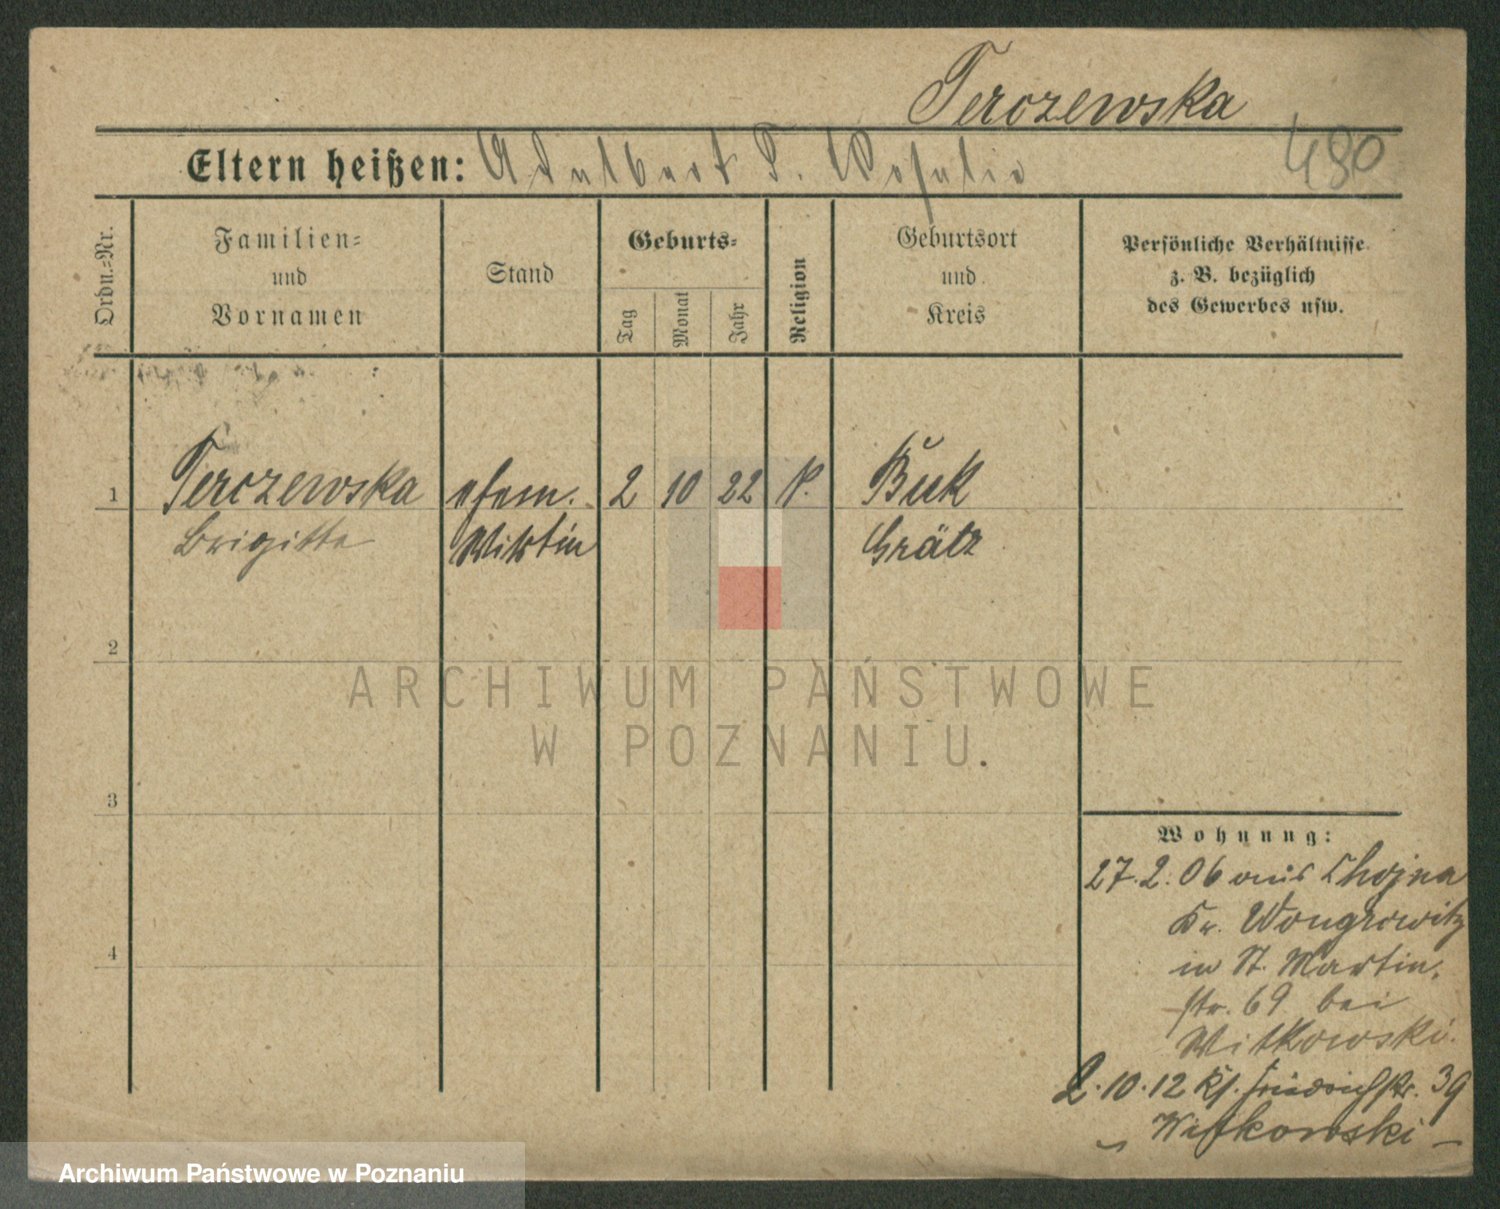 Terczewska
Eltern heißen: Adalbert T. Rosalie
480
Ordn.-Nr.
Familien-
und
Vornamen
Stand
Geburts-
Tag
Monat
Jahr
Religion
Geburtsort
und
Kreis
Persönliche Verhältnisse
z. B. bezüglich
des Gewerbes usw.
1
Terczewska
Brigitte
ehem.
Wirtin
2
10
22
Buk
Grätz
2
3
4
ARCHIWUM PAŃSTWOWE
W POZNANIU.
Wohnung:
27.2.06 aus Chojna
Kr. Wongrowitz
in St. Martin-
str. 69 bei
Witkowski.
2.10.12 Friedrichstr. 39
Witkowski –
Archiwum Państwowe w Poznaniu